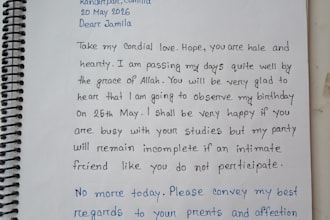 Kandirpar, Cumilla
20 May 2026
Dear Jamila
Take my cordial love. Hope, you are hale and
hearty. I am passing my days quite well by
the grace of Allah. You will be very glad to
hear that I am going to observe my birthday
on 25th May. I shall be very happy if you
are busy with your studies but my party
will remain incomplete if an intimate
friend like you do not perticipate.
No more today. Please convey my best
regards to your prients and affection